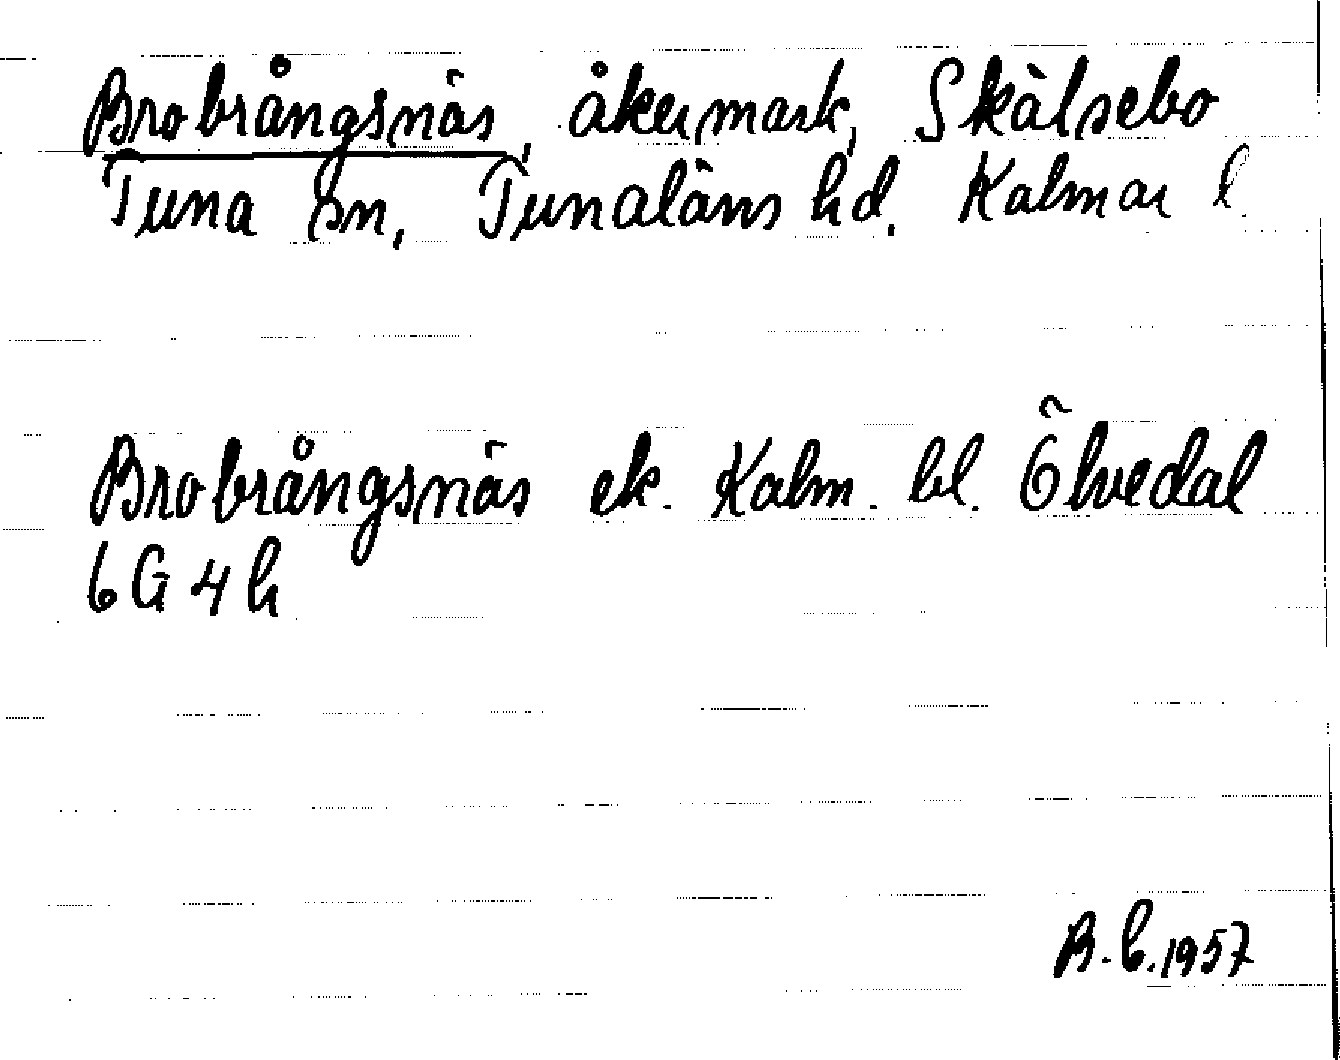 Brobrångsnäs, åkermark, Skälsebo
Tuna sn, Tunaläns hd. Kalmar l.
Brobrångsnäs ek. Kalm. bl. Ölvedal
6G4h
B.L.1957